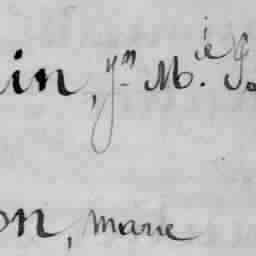 in, Jn M.ie
on, marie